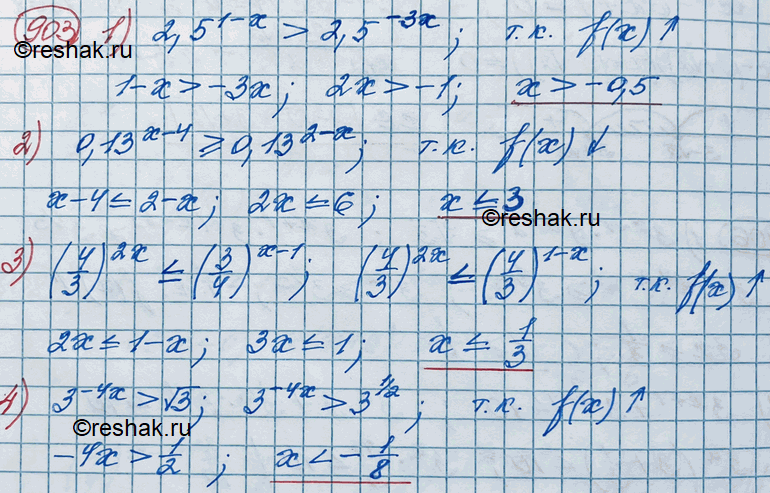 903 1) 2,5^{1-x} > 2,5^{-3x}; т.к. f(x) ↑
©reshak.ru
1-x > -3x; 2x > -1; x > -0,5
2) 0,13^{x-4} ≥ 0,13^{2-x}; т.к. f(x) ↓
x-4 ≤ 2-x; 2x ≤ 6; x ≤ 3
©reshak.ru
3) (4/3)^{2x} ≤ (3/4)^{x-1}; (4/3)^{2x} ≤ (4/3)^{1-x}; т.к. f(x) ↑
2x ≤ 1-x; 3x ≤ 1; x ≤ 1/3
4) 3^{-4x} > √3; 3^{-4x} > 3^{1/2}; т.к. f(x) ↑
©reshak.ru
-4x > 1/2; x < -1/8